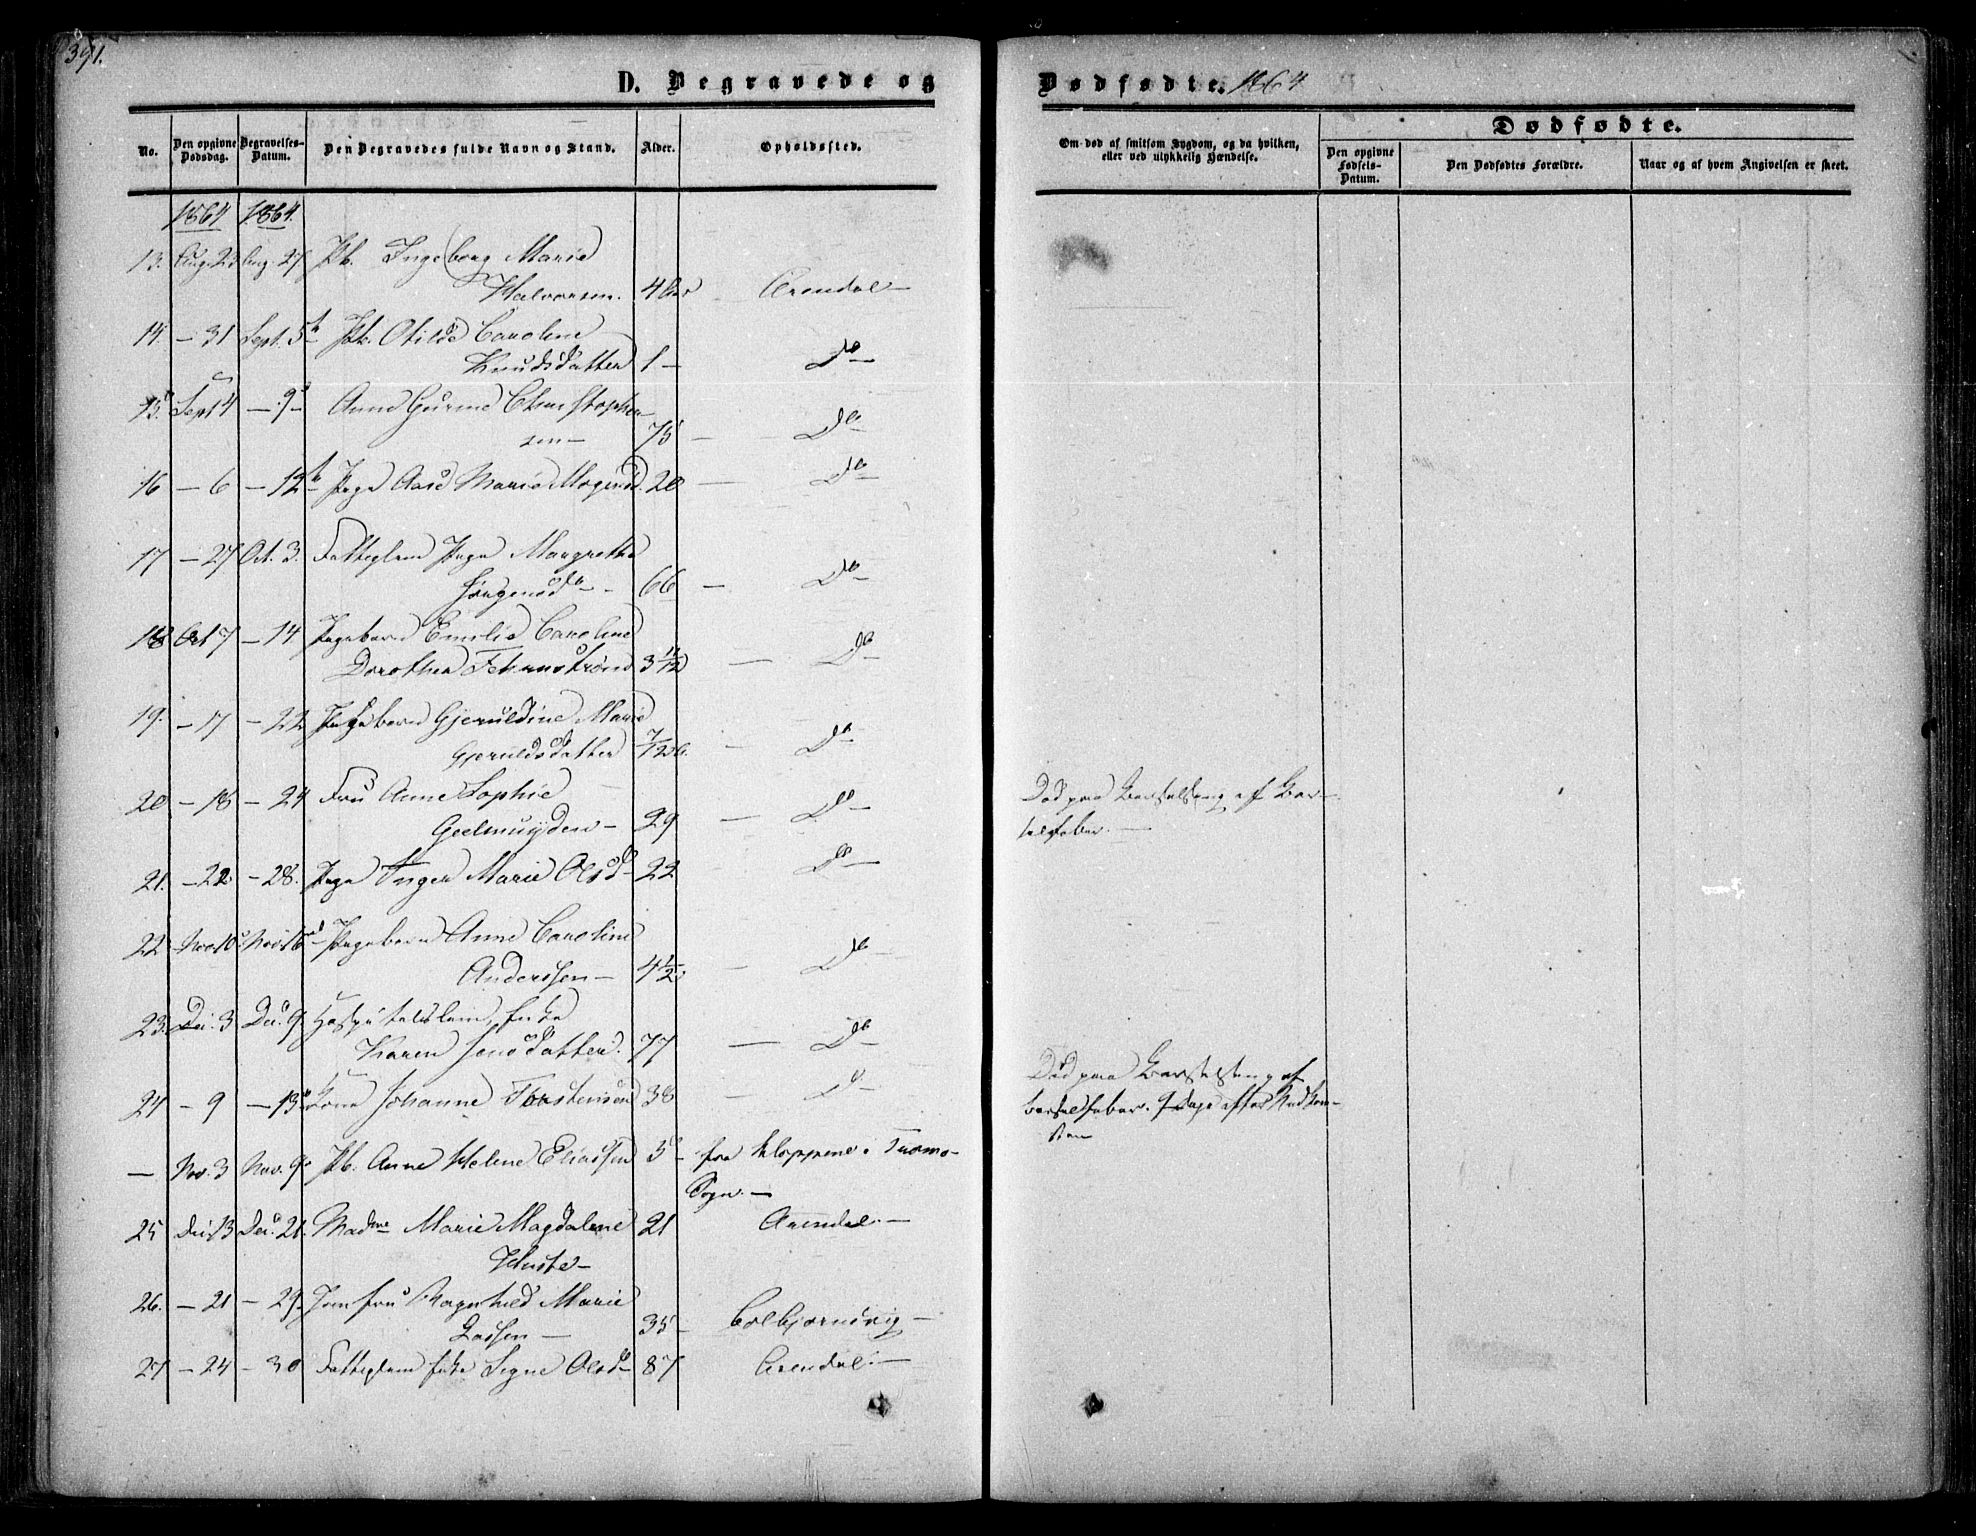 391.
D. Begravede og
Dødfødte. 1864
No.
Den opgivne Dødsdag.
Begravelses-Datum.
Den Begravedes fulde Navn og Stand.
Alder.
Opholdssted.
Om død af smitsom Sygdom, og da hvilken, eller ved ulykkelig Hændelse.
Dødfødte.
Den opgivne Fødsels-Datum.
Den Dødfødtes Forældre.
Naar og af hvem Angivelsen er skeet.
1864 1864.
13. Aug. 23 Aug. 27 Pb. Ingeborg Marie
Halvorsen. 4 Aar Arendal —
14. — 31 Sept. 5 Pk. Otilde Caroline
Knudsdatter 1 — Do —
15. Sept 4 — 9 — Anne Gurine Christophersen — 75 — Do
16 — 6 — 12 Pige Aase Marie Mogensd. 20 — Do —
17 — 27 Oct. 3. Fattiglem Pige Margrethe
Jörgensd — 66 — Do
18 Oct 7 — 14. Pigebarn Emilie Caroline
Dorothea 3 11/12 — Do
19. — 17 — 22 Pigebarn Gjeruldine Marie
Gjeruldsdatter 7/12 — Do
20 — 18 — 24 Fru Anne Sophie
Geelmuyden — 29 — Do — Död paa Barselseng af Barselfeber. —
21. — 22 — 28. Pige Inger Marie Olsd — 22 Do —
22. Nov. 10 Nov. 16 Pigebarn Anne Caroline
Anderssen — 4 1/2 — Do —
23. Dec. 3 Dec. 9. Hospitalslem, Enke
Karen Jensdatter. 77 — Do —
24 — 9 — 13 Kone Johanne Torstensen 38 — Do — Död paa Barselseng af
Barselfeber. 9 Dage efter Nedkomsten
— Nov. 3 Nov. 9 Pb. Anne Helene Eliassen 5 — fra Kloppene i Tromö
Sogn. —
25 Dec. 13 Dec. 21. Madme Marie Magdalene 21 Arendal. —
26. — 21 — 29. Jomfru Ragnhild Marie
Lassen — 35 — Colbjørnsvig —
27 — 24 — 30 Fattiglem Enke Signe Olsd — 87 Arendal. —